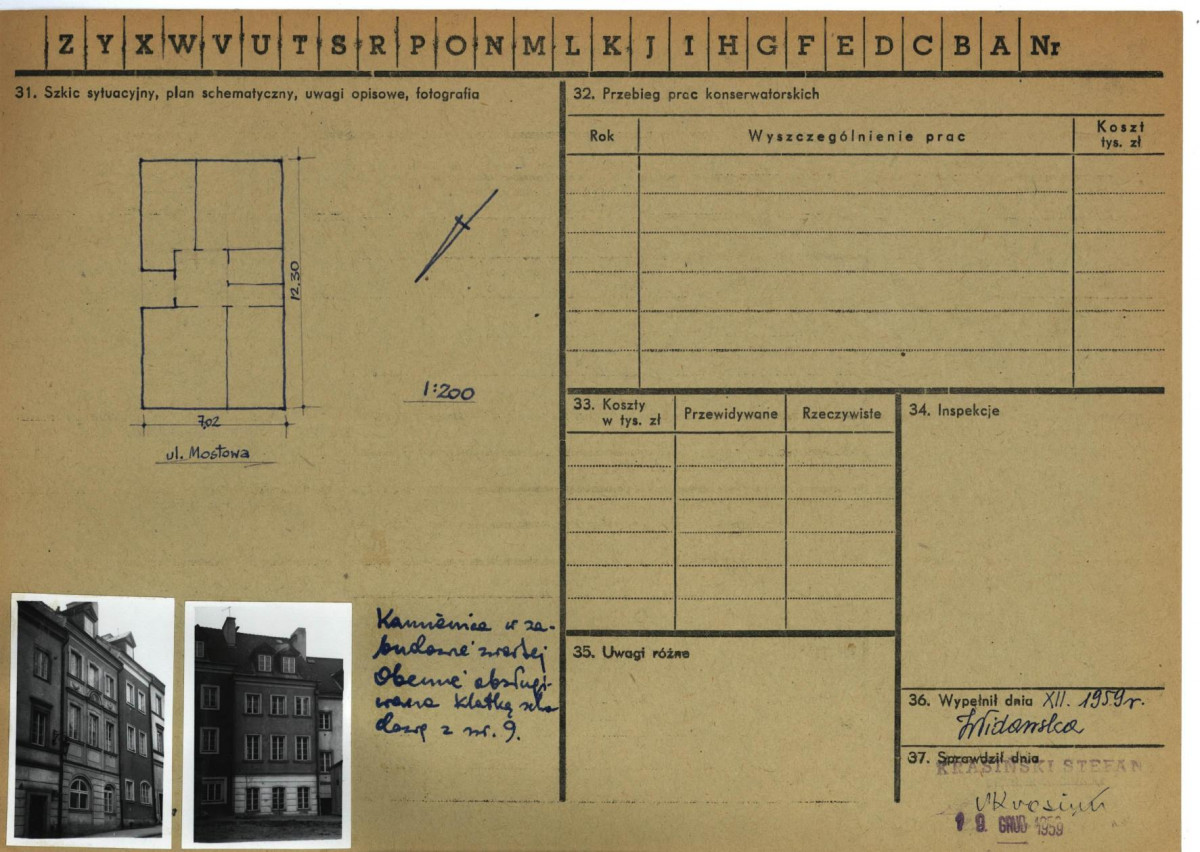 Z Y X W V U T S R P O N M L K J I H G F E D C B A Nr
31. Szkic sytuacyjny, plan schematyczny, uwagi opisowe, fotografia
12.30
1:200
7,02
ul. Mostowa
Kamienica w za-
budowie zwartej
Obecnie obsługi-
wana klatką scho
dową z nr. 9.
32. Przebieg prac konserwatorskich
Rok
Wyszczególnienie prac
Koszt
tys. zł
33. Koszty
w tys. zł
Przewidywane
Rzeczywiste
34. Inspekcje
35. Uwagi różne
36. Wypełnił dnia XII. 1959 r.
37. Sprawdził dnia
KRASIŃSKI STEFAN
19. GRUD 1959